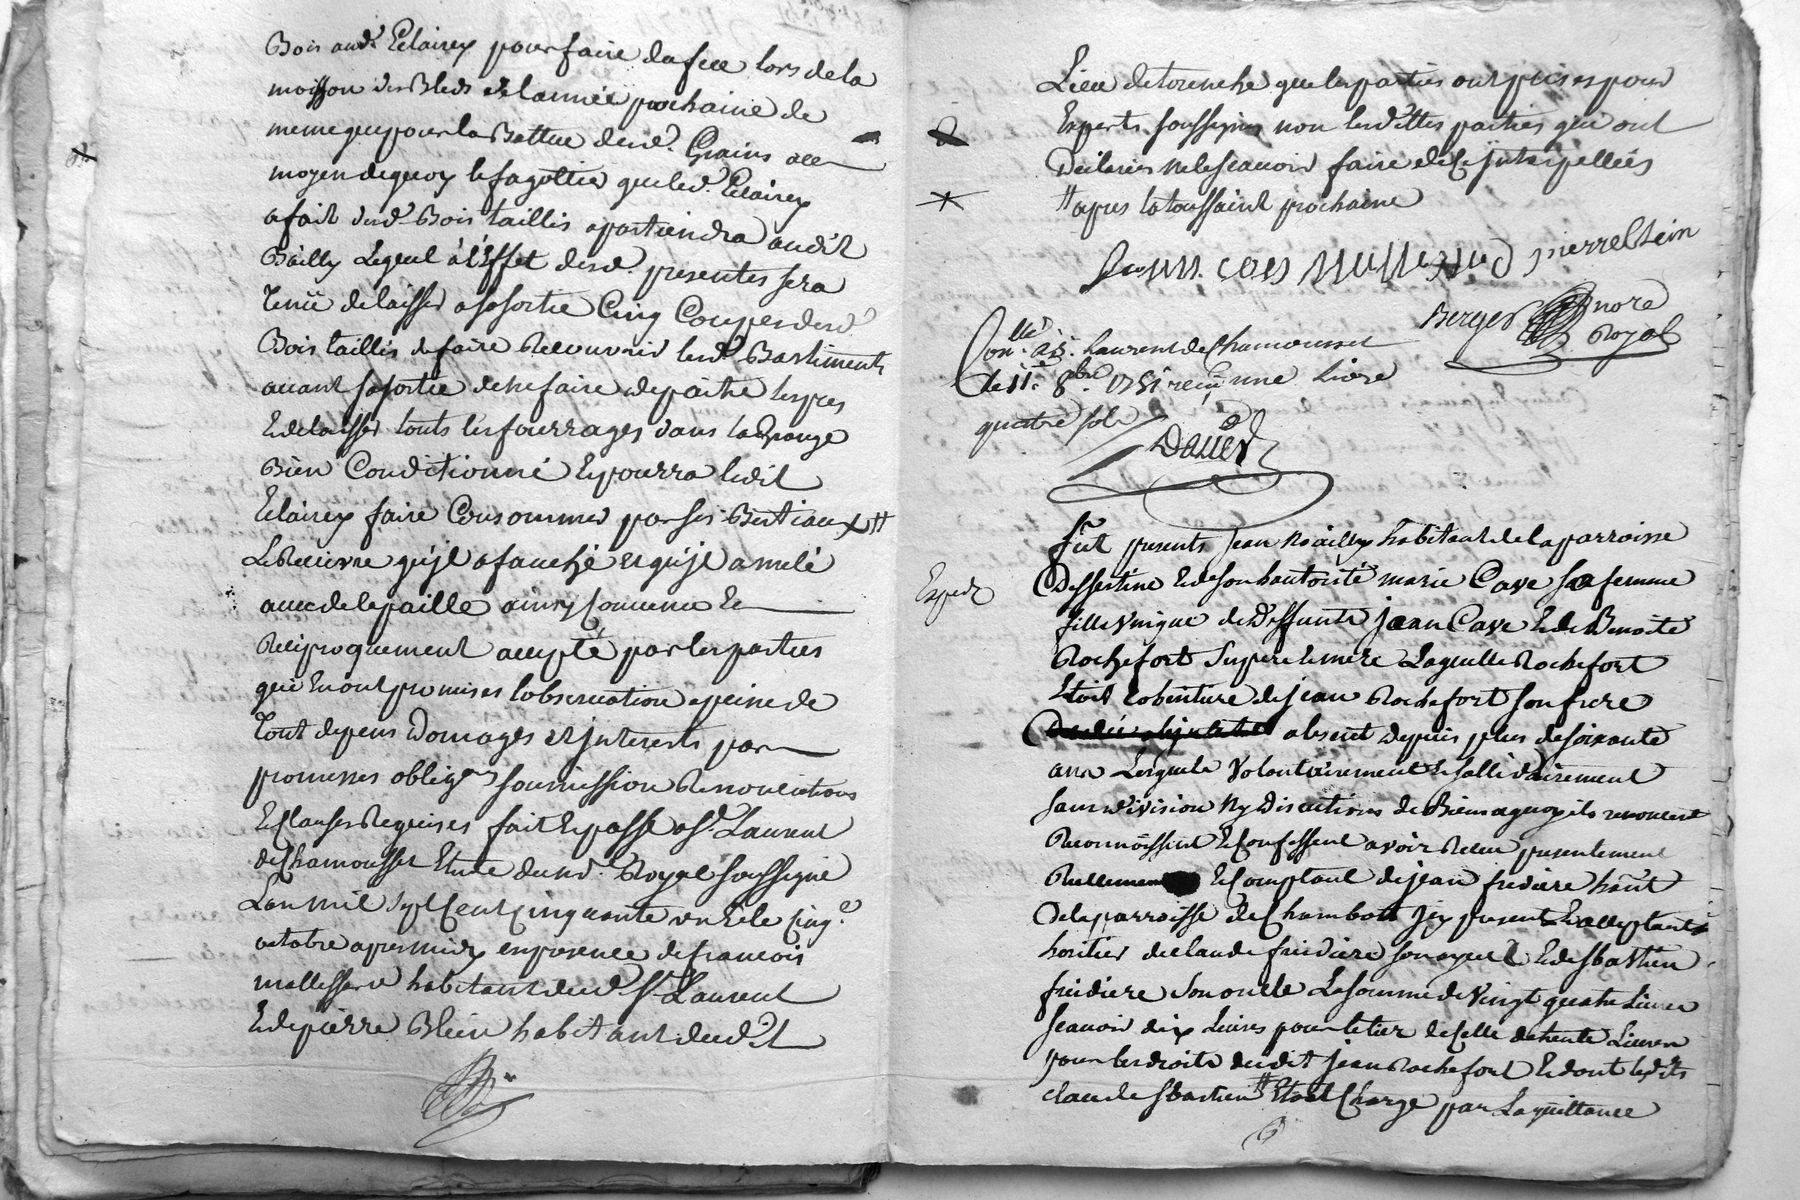 Bois aud. Eclairey pour faire du feu lors de la
moisson des Bleds de l'année prochaine de
meme que pour la Battue desd. Grains au
moyen de quoy le fagottier que led. Eclairey
a fait dud. Bois taillis apartiendra audit
Bailly Lequel à l'Effet desd. presentes sera
Tenü de laisser a sa sortie Cinq Coupes dud.
Bois taillis de faire Recouvrir lesd. Bastiments
avant sa sortie de ne faire depaitre les pres
Et de laisser touts les fourrages dans la Grange
Bien Conditionné Et pourra ledit
Eclairey faire Consommer par ses Bestiaux #
Le qu'jl a fauché et qu'jl a melé
avec de la paille ainsy Convenu Et
Reciproquement accepté par les parties
qui En ont promises l'observation a peine de
Tout depens Domages et jnterests par
promesses oblig.ons soumission Renonciations
Et Clauses Requises fait Et passé a St. Laurent
de Chamousset Etude du no.re Royal soussigné
L'an mil sept Cent Cinquante un Et le Cinq.e
octobre apres midy en presence de francois
habitant dud. St. Laurent
Et de pierre Blein habitant dudit
Lieu de tourenche que les parties ont prises pour
Experts soussignes non lesdittes parties qui ont
Declarées ne le scavoir faire de Ce Jnterpellées
# apres la toussaint prochaine
pierre blein
Berger nore
Royal
Conllé. a St. Laurent de Chamousset
Le 11.e 8bre. 1751 reçu une Livre
quatre sols
Dauer
Expede
fut presents Jean Noailly habitant de la parroisse
Dessertine Et de son hautorité marie Cave sa femme
fille Vnique de Deffunts jean Cave Et de Benoite
Rochefort Su pere Et mere Laquelle Rochefort
Etoit Coheritiere de jean Rochefort son frere
absent Depuis plus de soixante
ans Lesquels Volontairement Et sollidairement
sans division Ny Discution de Biens a quoy ils renoncent
Reconnoissent Et Confessent avoir Receu presentement
Reellement Et Comptant de jean fredière habt
De la parroisse de Chambost Jcy present Et acceptant
heritier de Claude fredière son ayeul Et de Sbastien
fredière Son oncle La somme de Vingt quatre Livres
scavoir dix Livres pour le tier de Celle de trente Livres
pour les droits dudit jean Rochefort Et dont lesdits
claude Sbastien # Etoit Chargé par La quittance